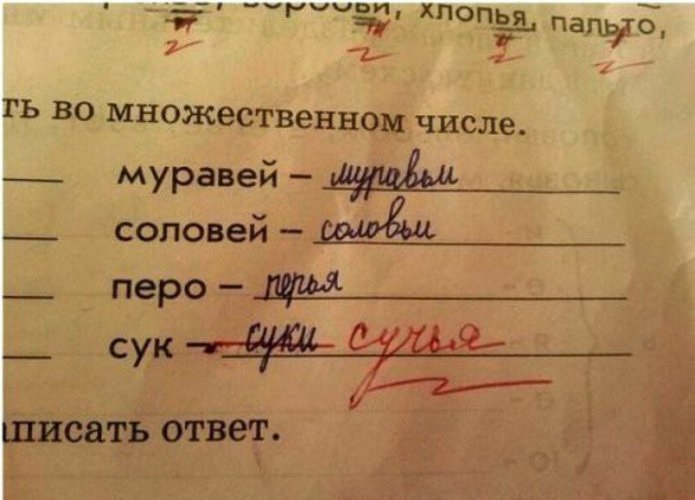 воробьи, хлопья, пальто,
ть во множественном числе.
муравей – муравьи
соловей – соловьи
перо – перья
сук – суки сучья
писать ответ.